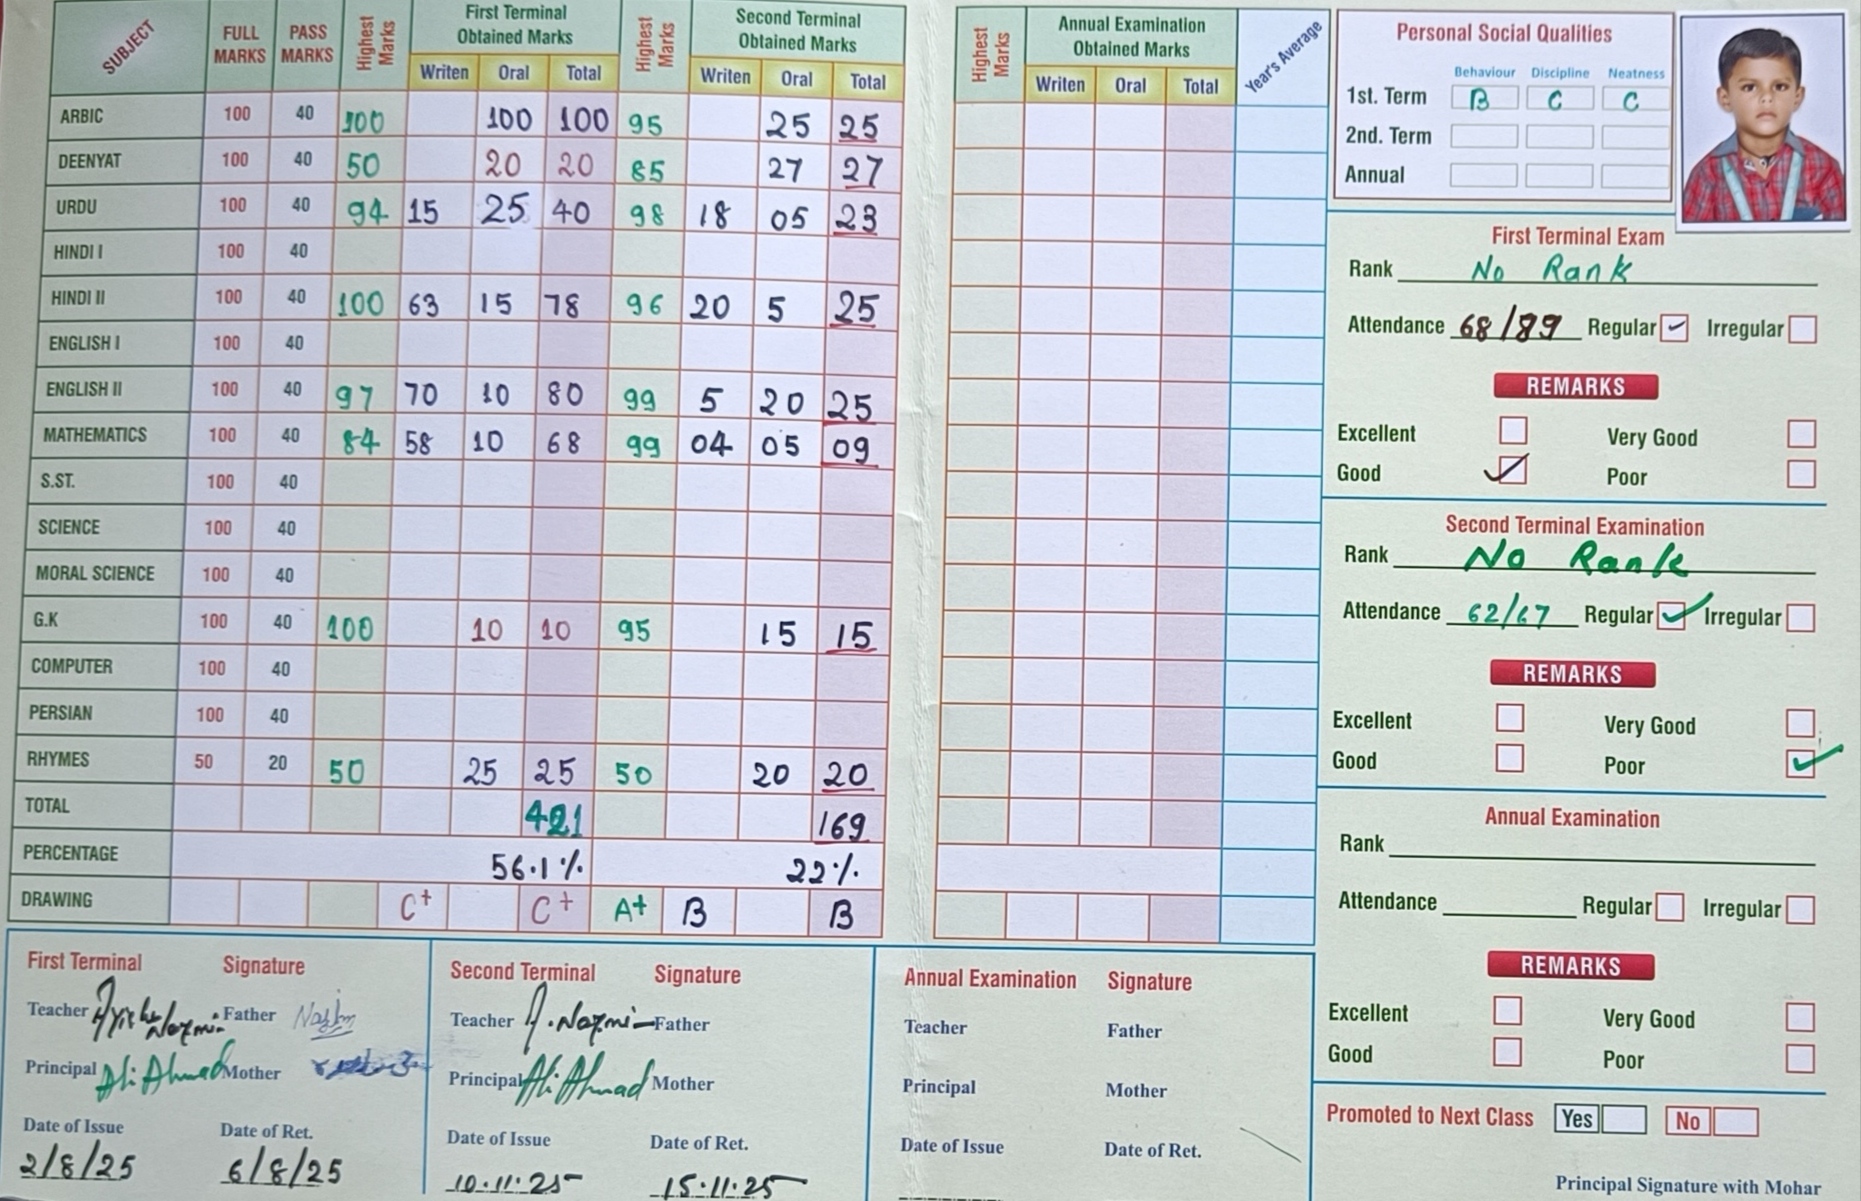 SUBJECT FULL MARKS PASS MARKS Highest Marks First Terminal Obtained Marks Highest Marks Second Terminal Obtained Marks
Writen Oral Total Writen Oral Total
ARBIC 100 40 100 100 100 95 25 25
DEENYAT 100 40 50 20 20 85 27 27
URDU 100 40 94 15 25 40 98 18 05 23
HINDI I 100 40
HINDI II 100 40 100 63 15 78 96 20 5 25
ENGLISH I 100 40
ENGLISH II 100 40 97 70 10 80 99 5 20 25
MATHEMATICS 100 40 84 58 10 68 99 04 05 09
S.ST. 100 40
SCIENCE 100 40
MORAL SCIENCE 100 40
G.K 100 40 100 10 10 95 15 15
COMPUTER 100 40
PERSIAN 100 40
RHYMES 50 20 50 25 25 50 20 20
TOTAL 421 169
PERCENTAGE 56.1% 22%
DRAWING C+ C+ A+ B B
Highest Marks Annual Examination Obtained Marks Year's Average
Writen Oral Total
Personal Social Qualities
Behaviour Discipline Neatness
1st. Term B C C
2nd. Term
Annual
First Terminal Exam
Rank No Rank
Attendance 68/89 Regular Irregular
REMARKS
Excellent Very Good
Good Poor
Second Terminal Examination
Rank No Rank
Attendance 62/67 Regular Irregular
REMARKS
Excellent Very Good
Good Poor
Annual Examination
Rank
Attendance Regular Irregular
REMARKS
Excellent Very Good
Good Poor
Promoted to Next Class Yes No
Principal Signature with Mohar
First Terminal Signature
Teacher Nazmi Father Nazim
Principal Ali Ahmad Mother
Date of Issue Date of Ret.
2/8/25 6/8/25
Second Terminal Signature
Teacher A. Nazmi Father
Principal Ali Ahmad Mother
Date of Issue Date of Ret.
10.11.25 15.11.25
Annual Examination Signature
Teacher Father
Principal Mother
Date of Issue Date of Ret.